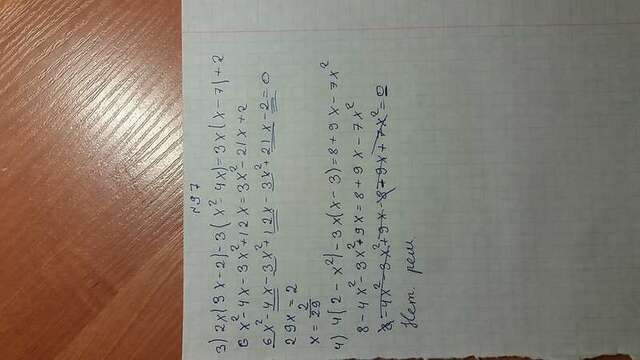 №97
3) 2x(3x-2)-3(x²-4x)=3x(x-7)+2
6x²-4x-3x²+12x=3x²-21x+2
6x²-4x-3x²+12x-3x²+21x-2=0
29x=2
x=2/29
4) 4(2-x²)-3x(x-3)=8+9x-7x²
8-4x²-3x²+9x=8+9x-7x²
8-4x²-3x²+9x-8+9x+7x²=0
Нет. реш